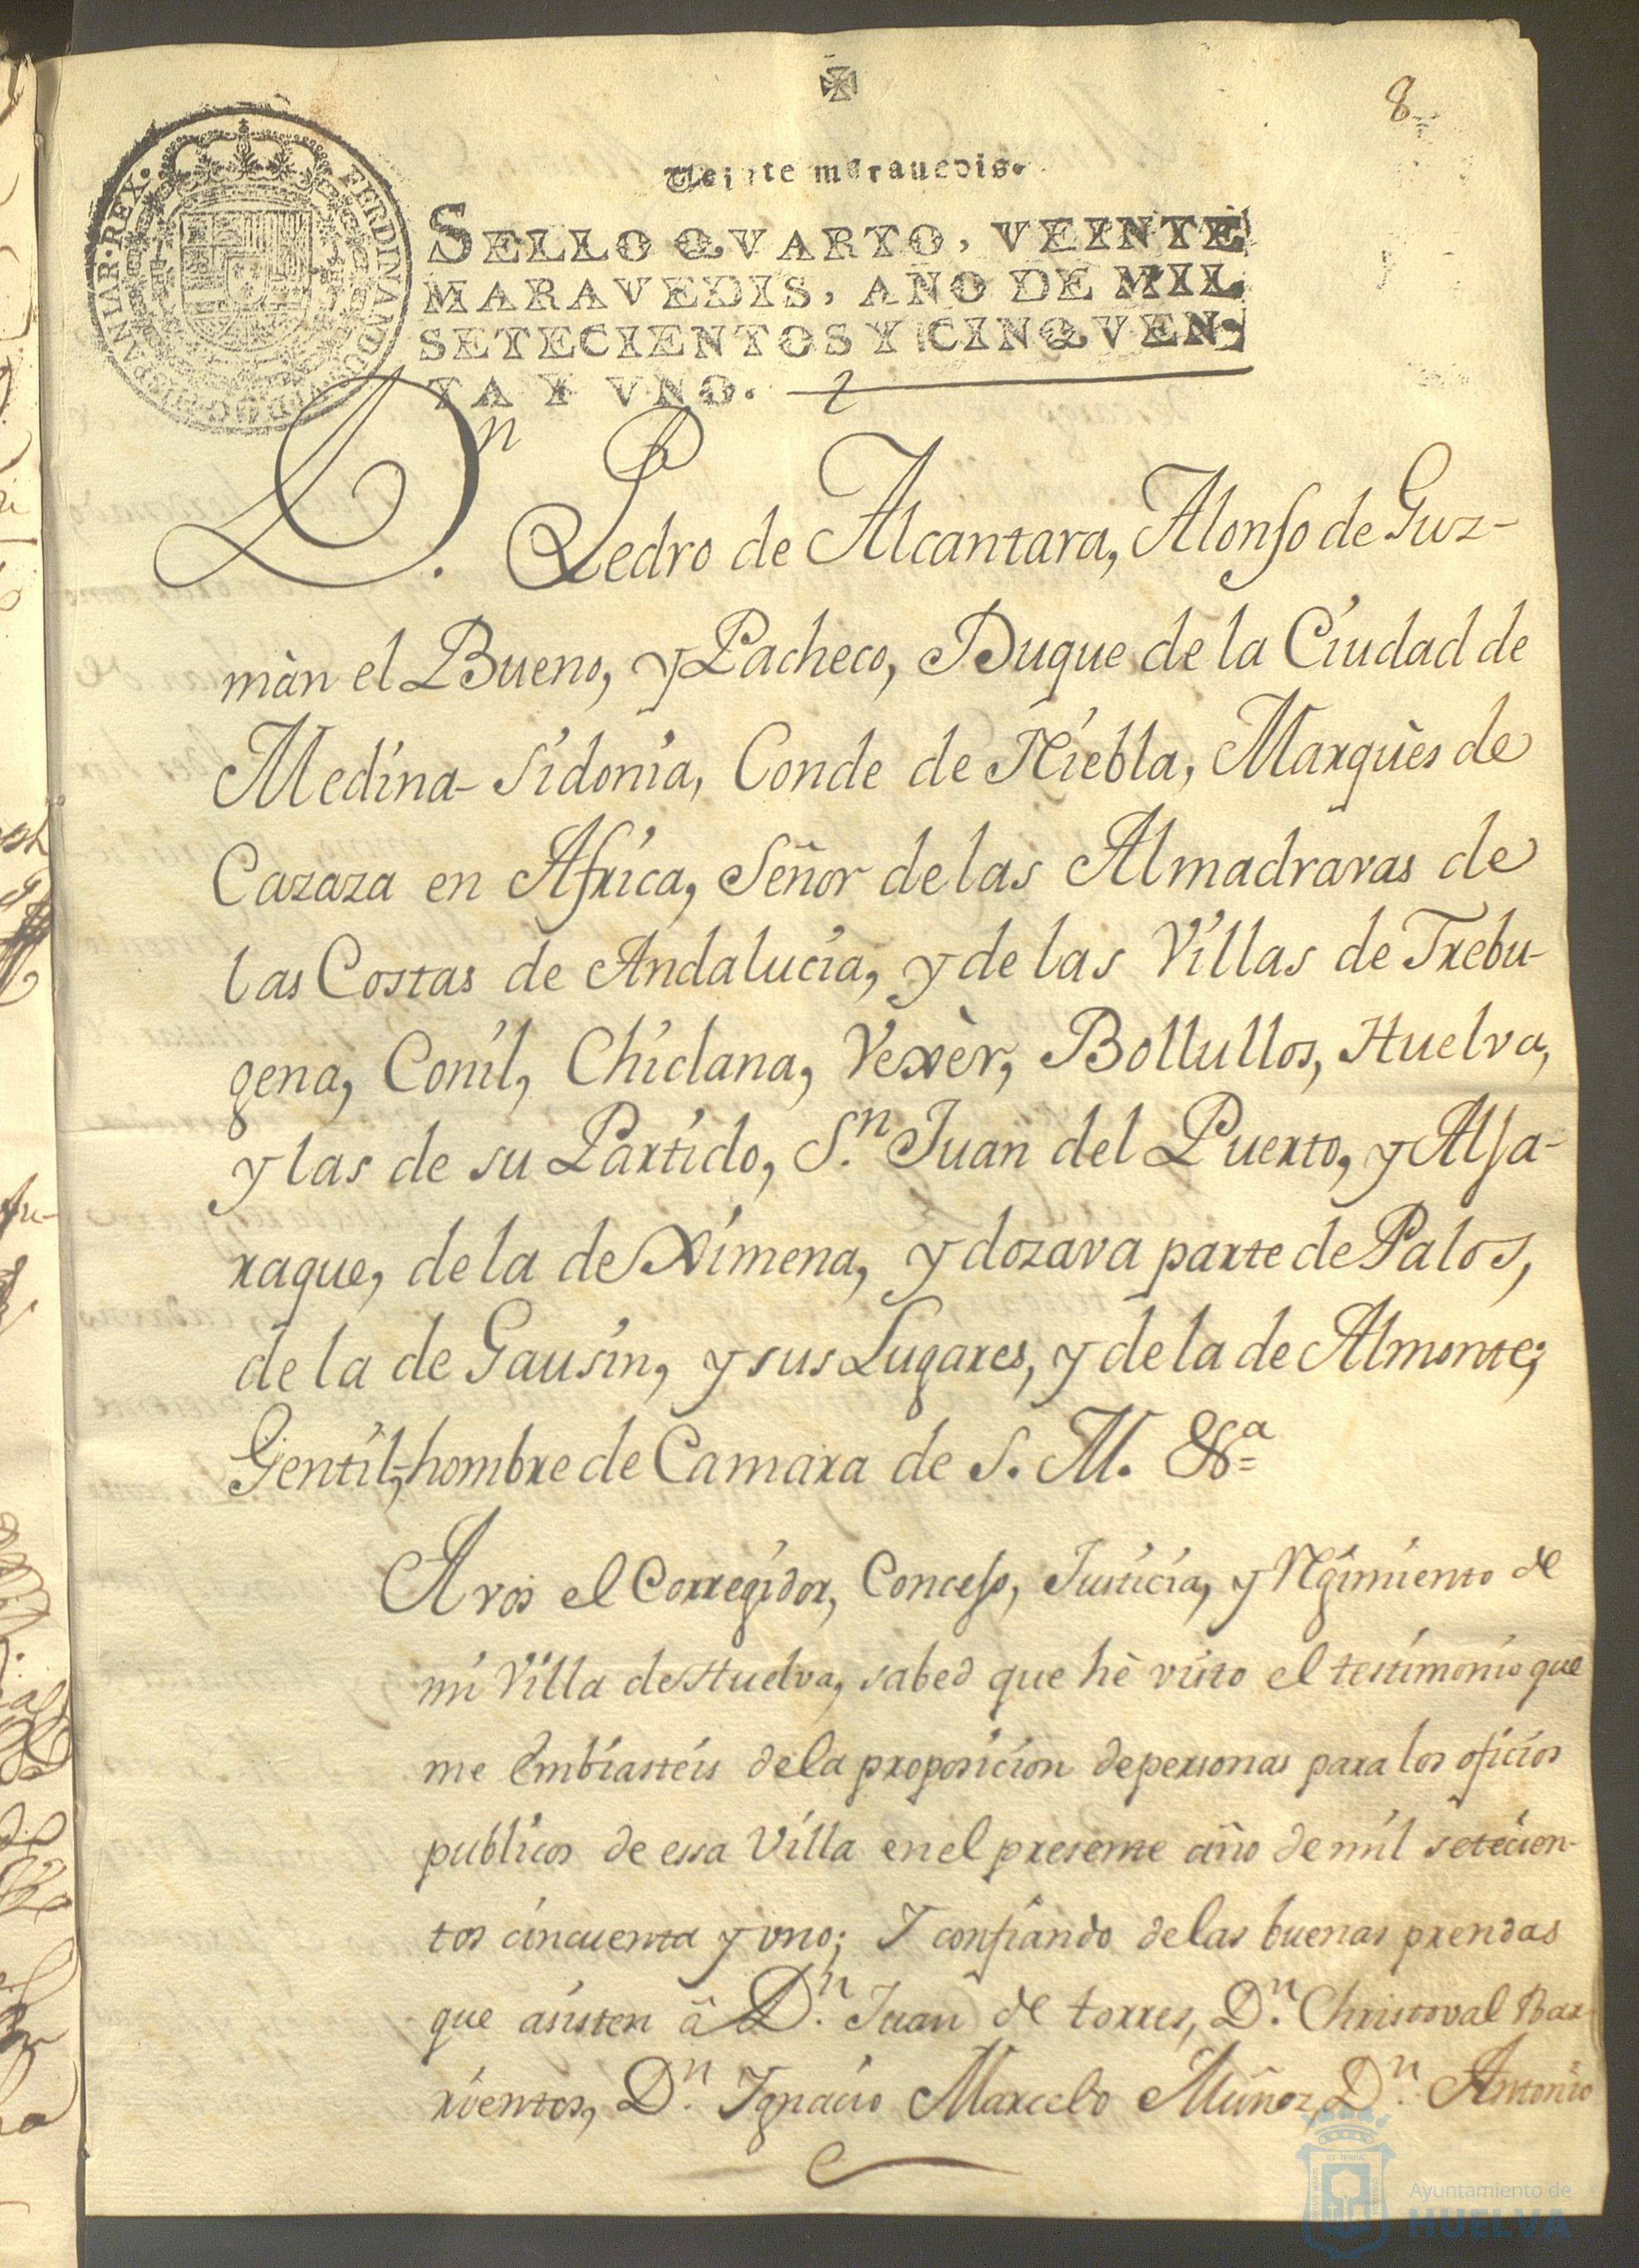 8
Veinte marauedis.
SELLO QVARTO, VEINTE
MARAVEDIS, AÑO DE MIL
SETECIENTOS Y CINQVEN-
TA Y VNO.
FERDINANDUS HISPANIAR. REX.
D.n Pedro de Alcantara, Alonso de Guz-
màn el Bueno, y Pacheco, Duque de la Ciudad de
Medina-Sidonia, Conde de Niebla, Marquès de
Cazaza en Africa, Señor de las Almadravas de
las Costas de Andalucia, y de las Villas de Trebu-
gena, Conil, Chiclana, Vexèr, Bollullos, Huelva,
y las de su Partido, S.n Juan del Puerto, y Alja-
raque, de la de Ximena, y dozava parte de Palos,
de la de Gausin, y sus Lugares, y de la de Almonte;
Gentil-hombre de Camara de S. M. &a
A vos el Corregidor, Concejo, Justicia, y Rgimiento de
mi Villa de Huelva, sabed que hè visto el testimonio que
me embiasteis de la proposicion de personas para los oficios
publicos de essa Villa en el presente año de mil setecien-
tos cincuenta y uno; Y confiando de las buenas prendas
que asisten â D.n Juan de torres, D.n Christoval Bar-
rientos, D.n Ignacio Marcelo Muñoz D.n Antonio
Ayuntamiento de
HUELVA